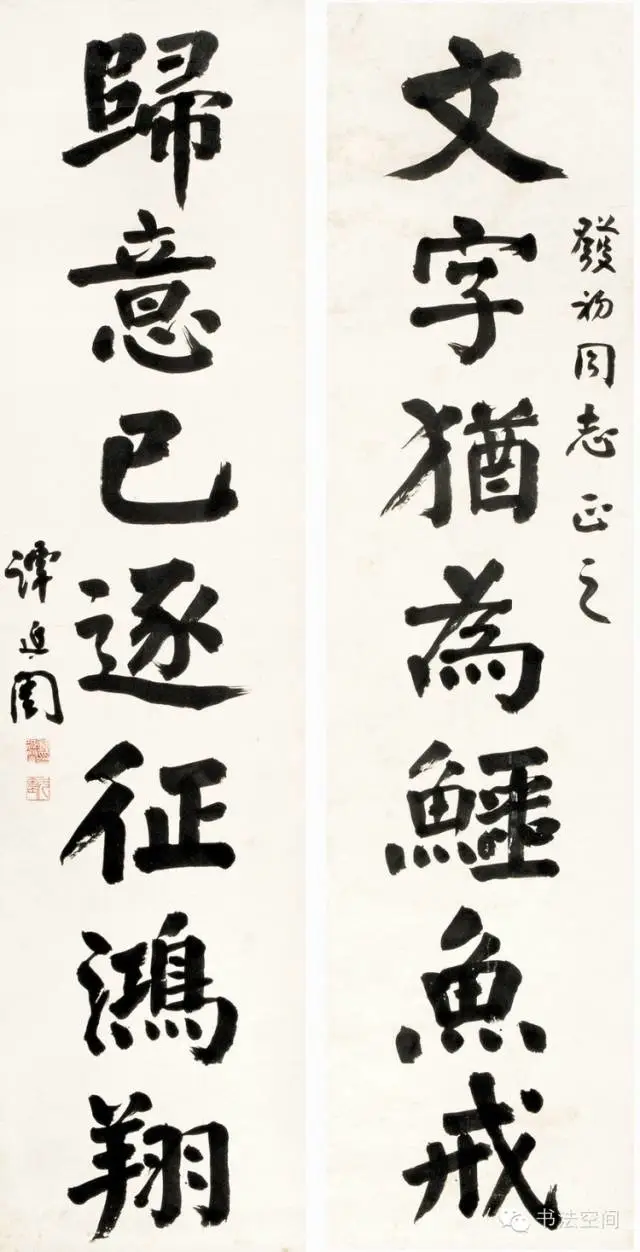 發初同志正之
文字猶為鱷魚戒
歸意已逐征鴻翔
譚延闓
书法空间